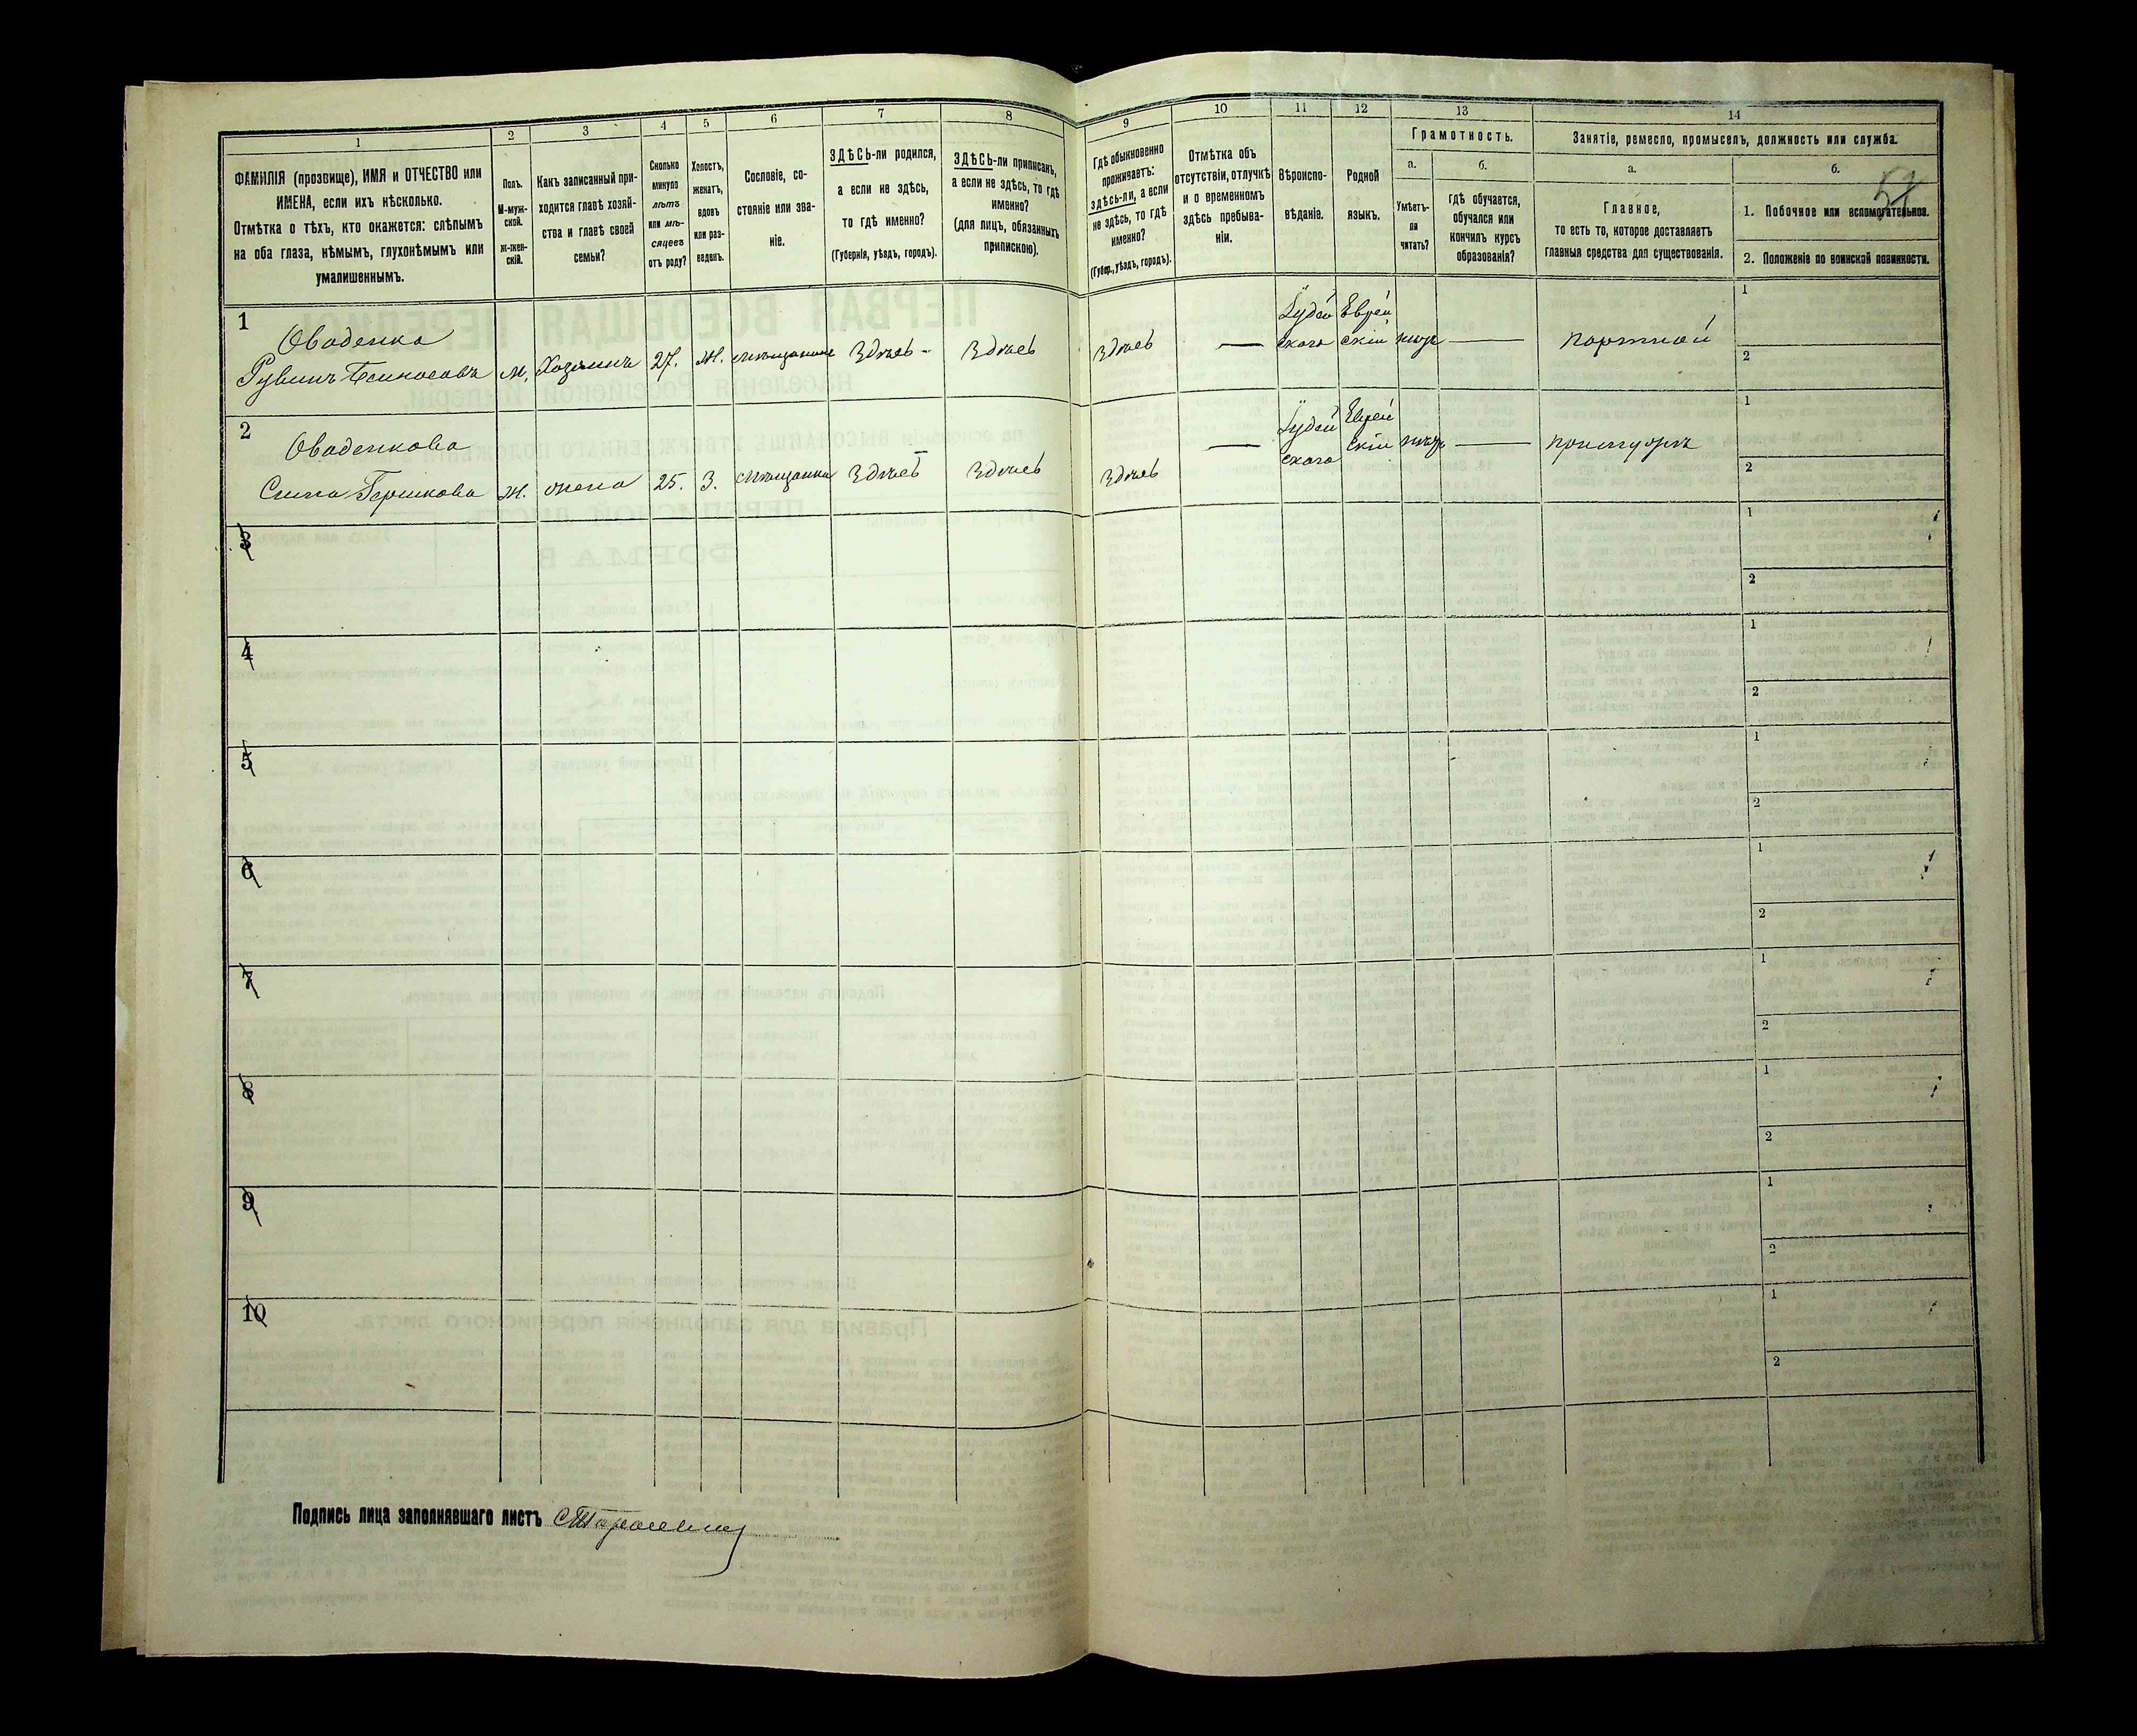 1
ФАМИЛІЯ (прозвище), ИМЯ и ОТЧЕСТВО или
ИМЕНА, если ихъ нѣсколько.
Отмѣтка о тѣхъ, кто окажется: слѣпымъ
на оба глаза, нѣмымъ, глухонѣмымъ или
умалишеннымъ.
2
Полъ.
М-муж-
ской.
Ж-жен-
скій.
3
Какъ записанный при-
ходится главѣ хозяй-
ства и главѣ своей
семьи?
4
Сколько
минуло
лѣтъ
или мѣ-
сяцевъ
отъ роду?
5
Холостъ,
женатъ,
вдовъ
или раз-
веденъ.
6
Сословіе, со-
стояніе или зва-
ніе.
7
ЗДѢСЬ-ли родился,
а если не здѣсь,
то гдѣ именно?
(Губернія, уѣздъ, городъ).
8
ЗДѢСЬ-ли приписанъ,
а если не здѣсь, то гдѣ
именно?
(для лицъ, обязанныхъ
припискою).
9
Гдѣ обыкновенно
проживаетъ:
здѣсь-ли, а если
не здѣсь, то гдѣ
именно?
(Губер., уѣздъ, городъ).
10
Отмѣтка объ
отсутствіи, отлучкѣ
и о временномъ
здѣсь пребыва-
ніи.
11
Вѣроиспо-
вѣданіе.
12
Родной
языкъ.
13
Грамотность.
а.
Умѣетъ-
ли
читать?
б.
Гдѣ обучается,
обучался или
кончилъ курсъ
образованія?
14
Занятіе, ремесло, промыселъ, должность или служба.
а.
Главное,
то есть то, которое доставляетъ
главныя средства для существованія.
б.
1. Побочное или вспомогательное.
2. Положеніе по воинской повинности.
57
1
Оваденко
Рувинъ
М. Хозяинъ 27. Ж. мѣщанинъ Здѣсь - Здѣсь Здѣсь — Іудей
ского Еврей
скій — портной
1
2
2
Оваденкова
Гершкова Ж. жена 25. З. мѣщанка Здѣсь Здѣсь Здѣсь — Іудей
ского Еврей
скій — при мужѣ
1
2
3
1
2
4
1
2
5
1
2
6
1
2
7
1
2
8
1
2
9
1
2
10
1
2
Подпись лица заполнявшаго листъ